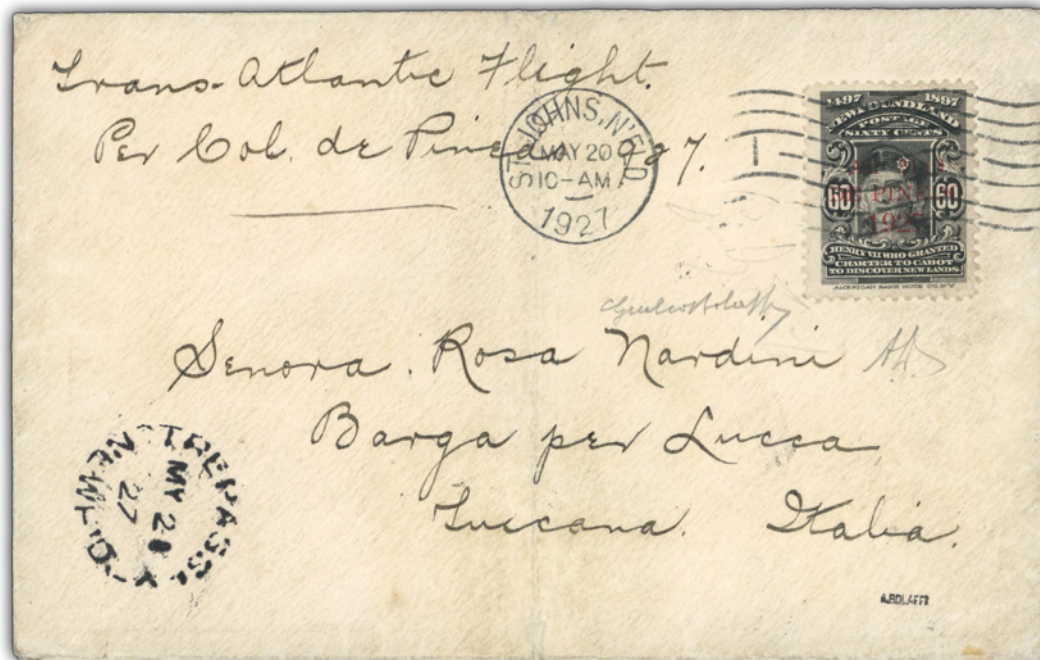 Trans-Atlantic Flight.
Per Col. de Pinedo 1927.
ST. JOHN'S, N'F'D
MAY 20
10-AM
1927
1497 1897
NEWFOUNDLAND
POSTAGE
SIXTY CENTS
60 60
DE PINEDO
1927
HENRY VII WHO GRANTED
CHARTER TO CABOT
TO DISCOVER NEW LANDS.
AMERICAN BANK NOTE CO. N.Y.
Senora. Rosa Nardini
Barga per Lucca
Tuscana. Italia.
TREPASSEY
MY 20
27
NEWF'D
A.BOLAFFI